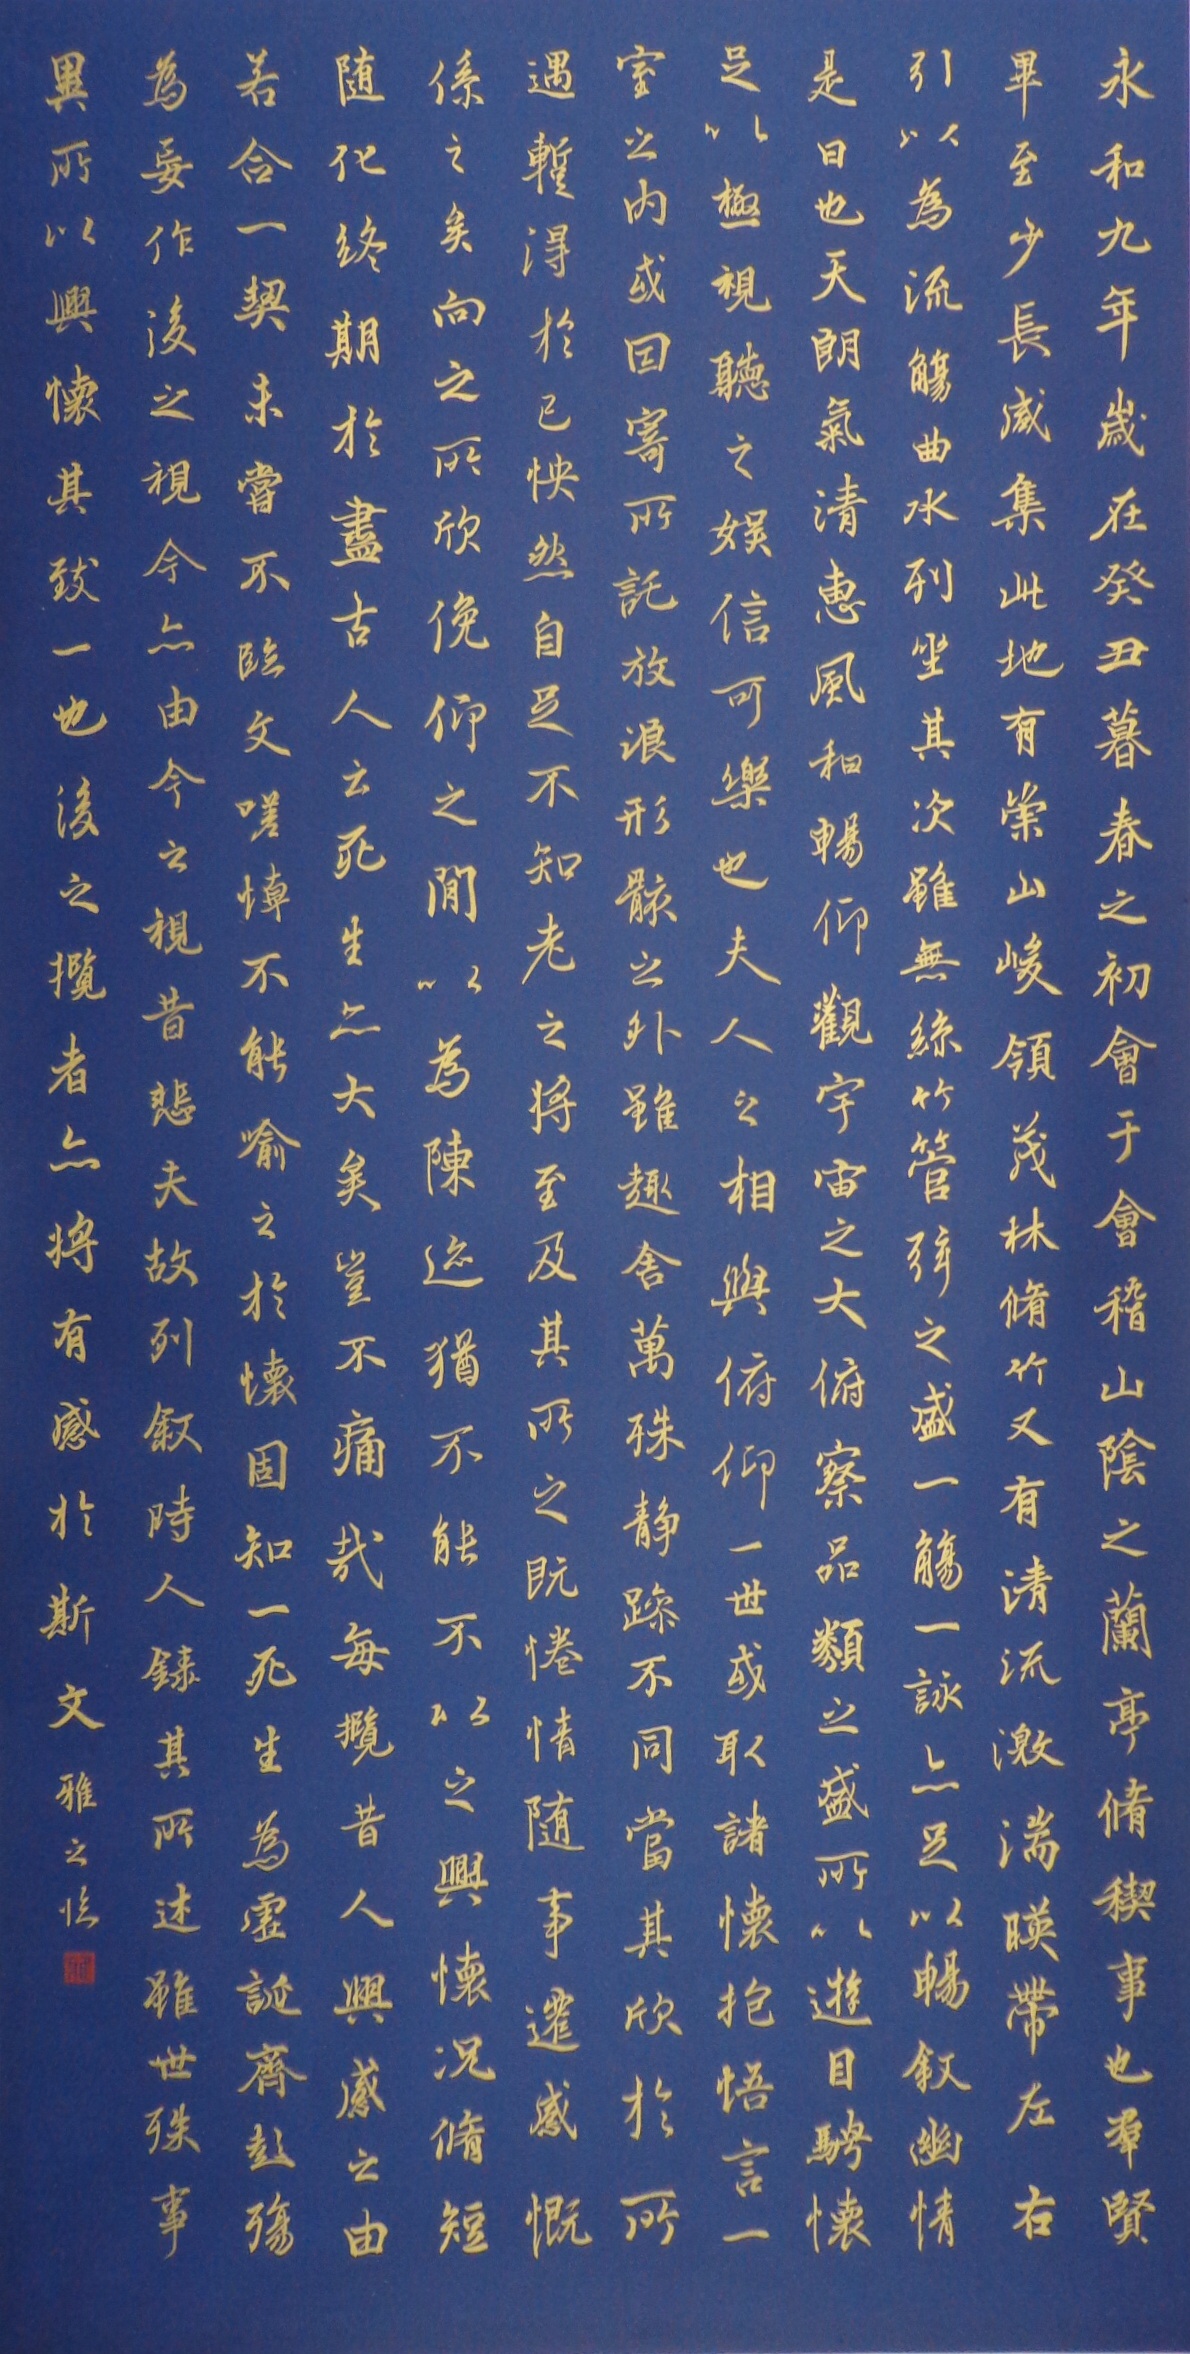 永和九年歲在癸丑暮春之初會于會稽山陰之蘭亭脩稧事也羣賢
畢至少長咸集此地有崇山峻領茂林脩竹又有清流激湍暎帶左右
引以為流觴曲水列坐其次雖無絲竹管弦之盛一觴一詠亦足以暢敘幽情
是日也天朗氣清惠風和暢仰觀宇宙之大俯察品類之盛所以遊目騁懷
足以極視聽之娛信可樂也夫人之相與俯仰一世或取諸懷抱悟言一
室之內或因寄所託放浪形骸之外雖趣舍萬殊静躁不同當其欣於所
遇蹔得於己怏然自足不知老之將至及其所之既惓情隨事遷感慨
係之矣向之所欣俛仰之閒以為陳迹猶不能不以之興懷況脩短
隨化終期於盡古人云死生亦大矣豈不痛哉每攬昔人興感之由
若合一契未嘗不臨文嗟悼不能喻之於懷固知一死生為虛誕齊彭殤
為妄作後之視今亦由今之視昔悲夫故列敘時人錄其所述雖世殊事
異所以興懷其致一也後之攬者亦將有感於斯文 雅之臨